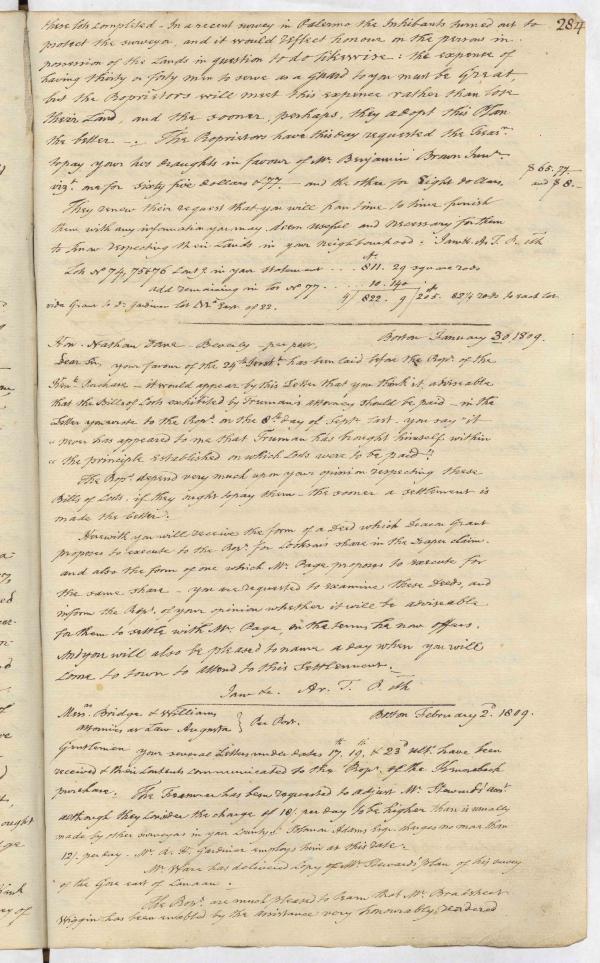 284
these Lots completed - In a recent survey in Palermo the Inhabitants turned out to
protect the surveyor, and it would reflect honour on the persons in
possession of the Lands in question to do likewise: the expence of
having thirty or forty men to serve as a Guard to you must be Great,
but the Proprietors will meet this expence rather than lose
their Land, and the sooner, perhaps, they adopt this Plan
the better -. The Proprietors have this day requested the Treasr.
to pay your two draughts in favour of Mr. Benjamin Brown Junr.
vizt. one for Sixty five Dollars & 77 - and the other for Eight dollars,
$65.77.
and $8.-
They renew their request that you will from time to time furnish
them with any information you may deem useful and necessary for them
to know respecting their Lands in your neighbourhood: I am &c. Ar. T. P. 
Lots No 74, 75 & 76 in your Statement ... 811. 29 square rods
add remaining in Lot No 77 ... 10. 140
4) 822. 9 (205. 82¼ rods to each Lot.
vide Grant to Dr. Gardiner Lot East of 22.
Hon. Nathan Dane - Beverly - per post, Boston January 30 1809.
Dear Sir, your favour of the 24th Inst. has been laid before the Propr. of the
Kenk. Purchase - it would appear by this Letter that you think it adviseable
that the Bills of Costs exhibited by Truman's attorney should be paid - in the
Letter you wrote to the Propr. on the 8th day of Septr. last - you say "it
" never has appeared to me that Truman has brought himself within
" the principle established on which Costs were to be paid".
The Propr. depend very much upon your opinion respecting these
Bills of Costs. if they ought to pay them - the sooner a settlement is
made the better.
Herewith you will receive the form of a Deed which Deacon Grant
proposes to execute to the Propr. for share in the Draper claim.
and also the form of one which Mr. Page proposes to execute for
the same share - you are requested to examine these Deeds, and
inform the Propr. of your opinion whether it will be adviseable
for them to settle with Mr. Page, on the terms he now offers.
And you will also be pleased to name a day when you will
come to town to attend to this Settlement.
I am &c. Ar. T. P. 
Messrs. Bridge & Williams
attornies at Law Augusta } Per Post. Boston February 2d. 1809.
Gentlemen your several Letters under dates 17th, 19th, & 23d ult. have been
received & their Contents communicated to the Propr. of the Kennebeck
purchase. The Treasurer has been requested to adjust Mr. Steward's acct.
although they consider the charge of 18/. per day to be higher than is usually
made by other surveyors in your County. Adams Esqr. charges no more than
12/. per day. Mr. R. H. Gardiner employs him at this rate.
Mr. Ware has delivered Copy of Mr. Steward's Plan of his survey
of the Gore east of Canaan.
The Propr. are much pleased to learn that Mr. Bradstreet
Wiggin has been enabled by the assistance very honourably rendered